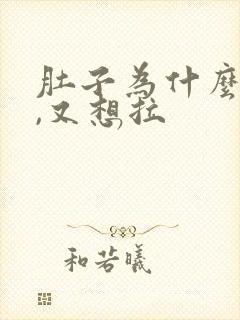 肚子為什麼
,又想拉
和若曦